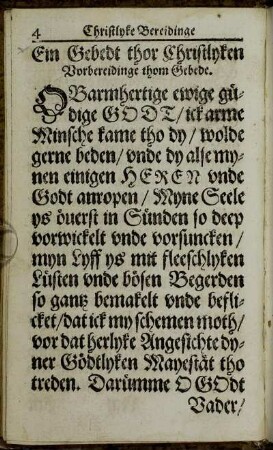 4 Christlyke Bereidinge
Ein Gebedt thor Christlyken
Vorbereidinge thom Gebede.
O Barmhertige ewige gü-
dige GODT / ick arme
Minsche kame tho dy / wolde
gerne beden / vnde dy alse my-
nen einigen HEREN vnde
Godt anropen / Myne Seele
ys öuerst in Sünden so deep
vorwickelt vnde vorsuncken /
myn Lyff ys mit fleeschlyken
Lüsten vnde bösen Begerden
so gantz bemakelt vnde befle-
cket / dat ick my schemen moth /
vor dat herlyke Angesichte dy-
ner Gödtlyken Mayestät tho
treden. Darümme O GOdt
Vader /